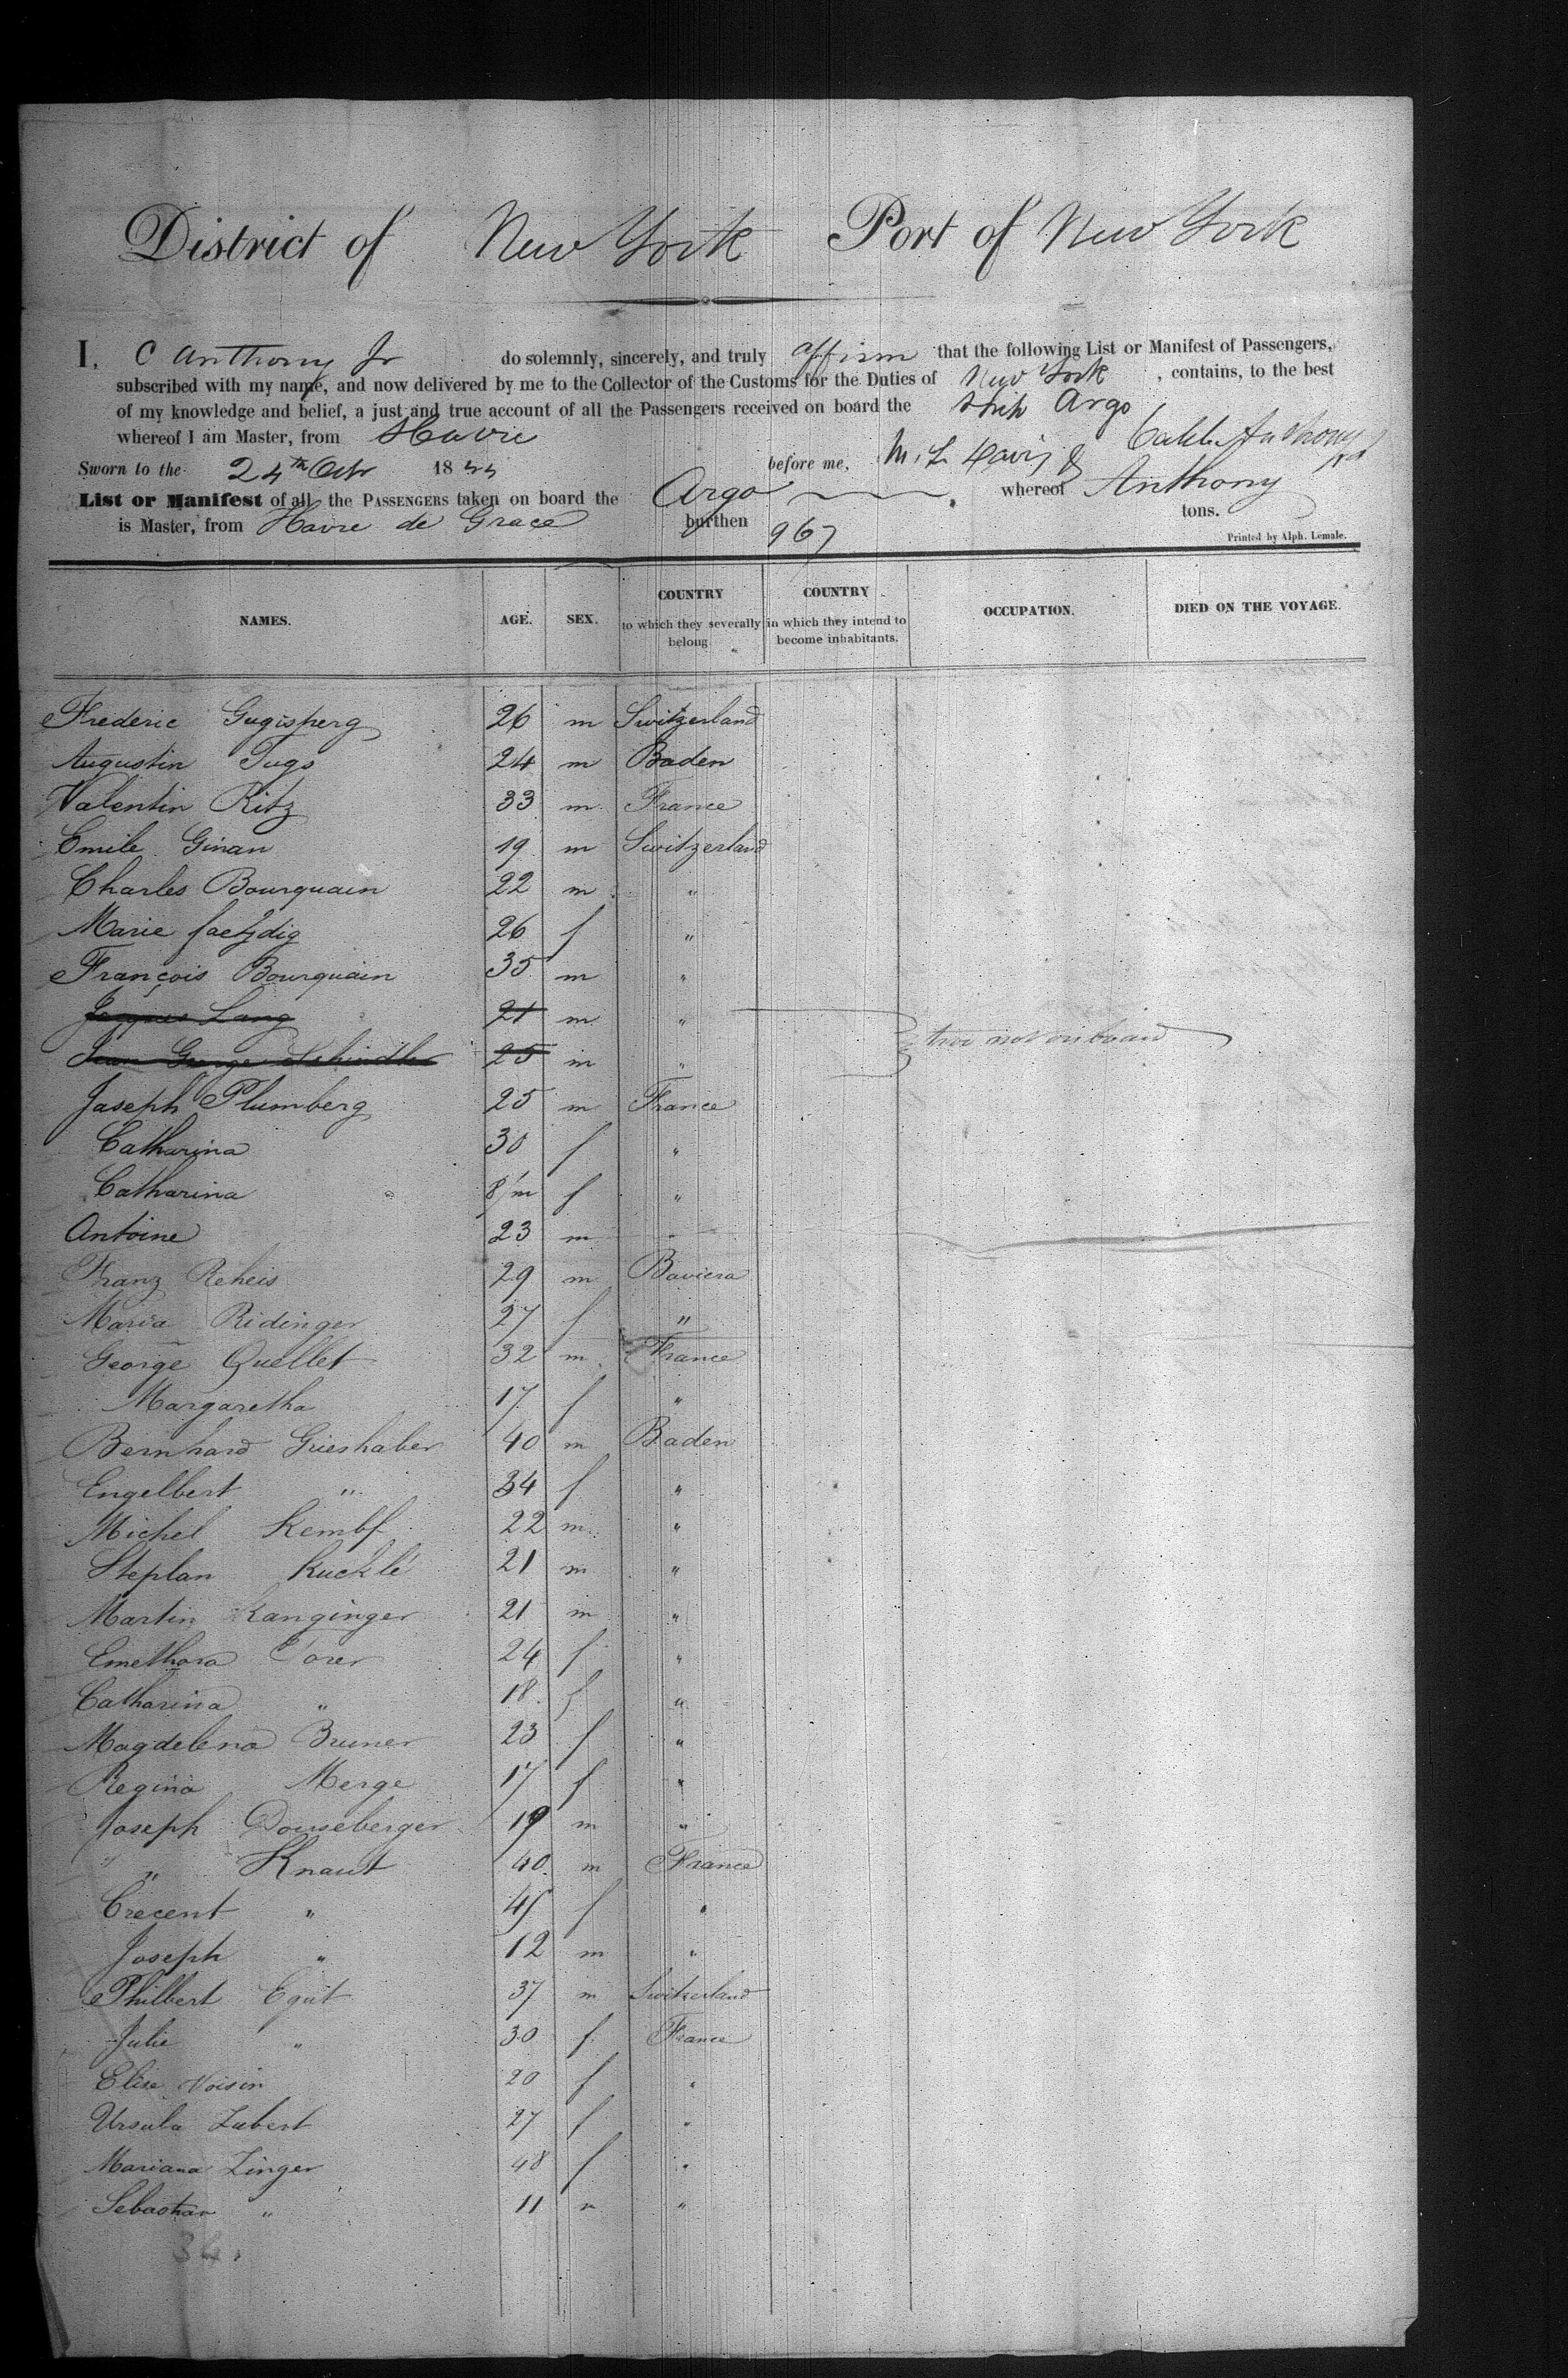 District of New York Port of New York
I, C Anthony Jr do solemnly, sincerely, and truly affirm that the following List or Manifest of Passengers,
subscribed with my name, and now delivered by me to the Collector of the Customs for the Duties of New York, contains, to the best
of my knowledge and belief, a just and true account of all the Passengers received on board the Ship Argo
whereof I am Master, from Havre Caleb Anthony Jr
Sworn to the 24th Octr 1844 before me, M. L. Davis
List or Manifest of all the PASSENGERS taken on board the Argo whereof Anthony
is Master, from Havre de Grace burthen 967 tons.
Printed by Alph. Lemale.
NAMES. AGE. SEX. COUNTRY to which they severally belong COUNTRY in which they intend to become inhabitants. OCCUPATION. DIED ON THE VOYAGE.
Frederic Gugisperg 26 m Switzerland
Augustin Tugs 24 m Baden
Valentin Ritz 33 m France
Emile Ginan 19 m Switzerland
Charles Bourquain 22 m "
Marie 26 f "
François Bourquain 35 m "
Jacques Lang 21 m "
Jean George Schindler 25 m " two not on board
Joseph Plumberg 25 m France
Catharina 30 f "
Catharina 8/m f "
Antoine 23 m "
Franz Reheis 29 m Baviera
Maria Ridinger 27 f "
George Quellet 32 m France
Margaretha 17 f "
Bernhard Grieshaber 40 m Baden
Engelbert " 34 f "
Michel Kembf 22 m "
Steplan Kucklé 21 m "
Martin Kanginger 21 m "
Emethora 24 f "
Catharina " 18 f "
Magdelena Bruner 23 f "
Regina Merge 17 f "
Joseph Douseberger 19 m "
" Knaut 40 m France
Crecent " 45 f "
Joseph " 12 m "
Philbert Eguit 37 m Switzerland
Julie " 30 f France
Elise Voisin 20 f "
Ursula Lubert 27 f "
Mariana Zinger 48 f "
Sebastian " 11 m "
34.